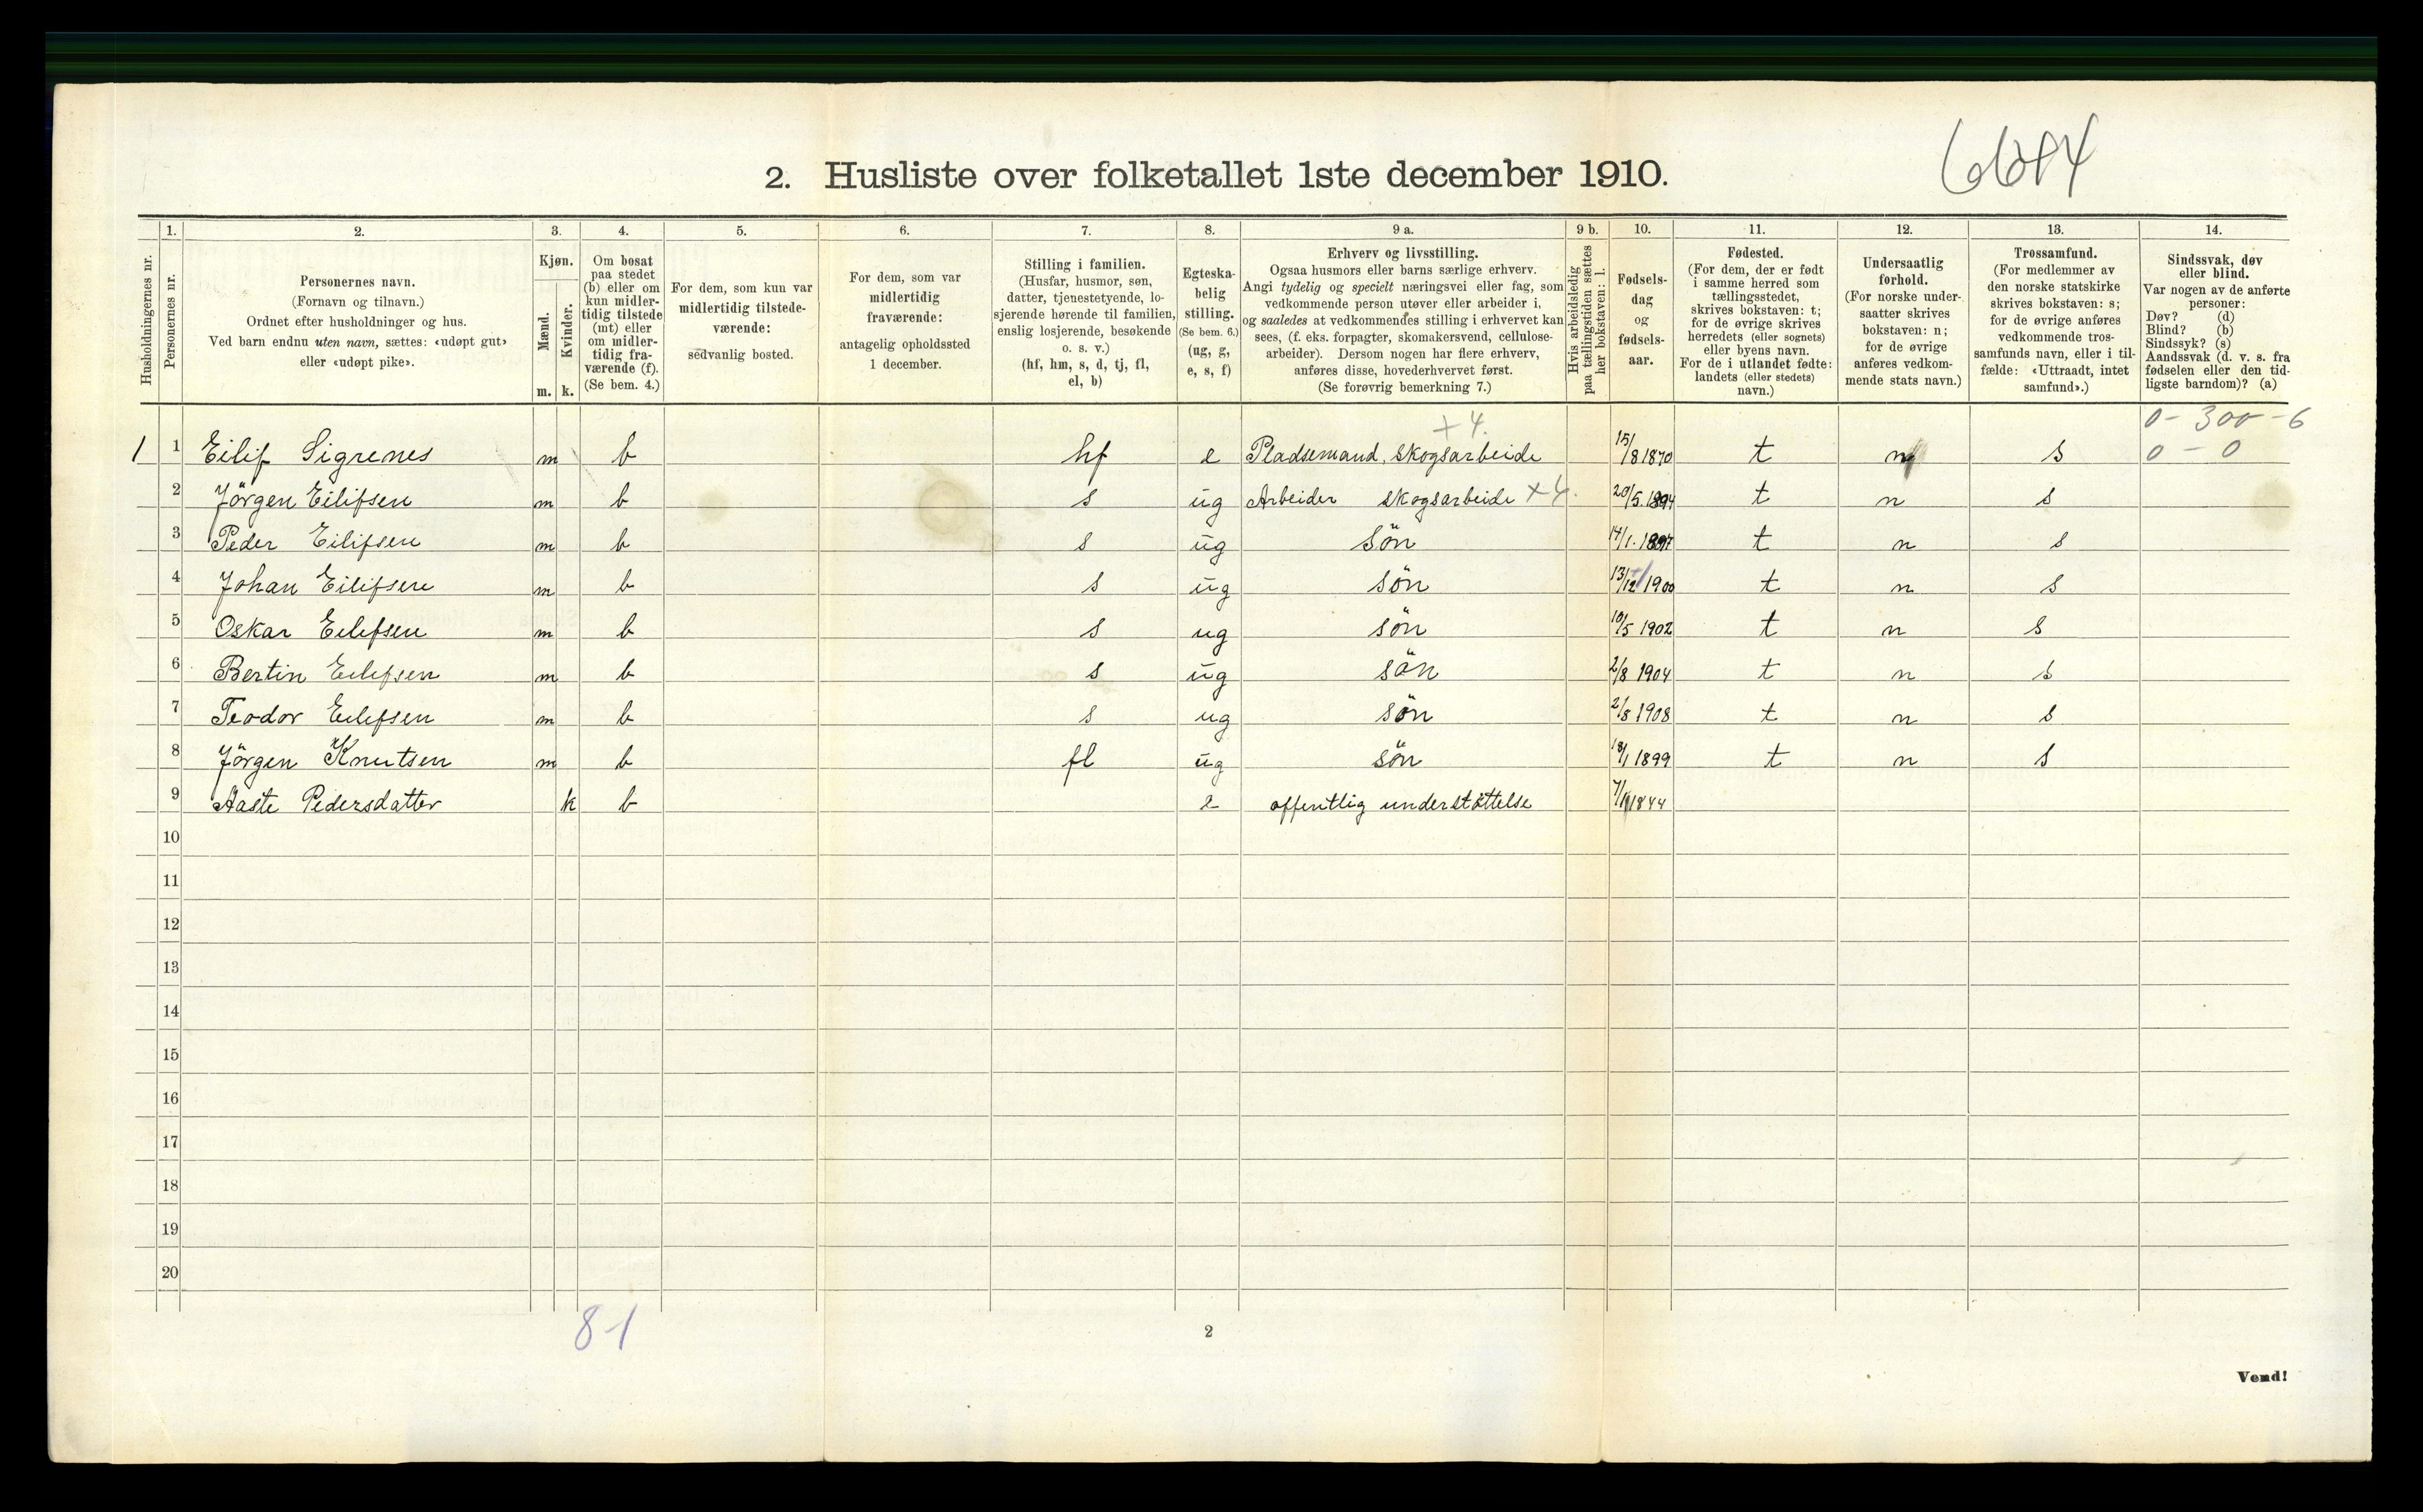 6684
2. Husliste over folketallet 1ste december 1910.
1. 2. 3. 4. 5. 6. 7. 8. 9 a. 9 b. 10. 11. 12. 13. 14.
Husholdningernes nr.
Personernes nr.
Personernes navn.
(Fornavn og tilnavn.)
Ordnet efter husholdninger og hus.
Ved barn endnu uten navn, sættes: «udøpt gut»
eller «udøpt pike».
Kjøn.
Mænd.
Kvinder.
m. k.
Om bosat
paa stedet
(b) eller om
kun midler-
tidig tilstede
(mt) eller
om midler-
tidig fra-
værende (f).
(Se bem. 4.)
For dem, som kun var
midlertidig tilstede-
værende:
sedvanlig bosted.
For dem, som var
midlertidig
fraværende:
antagelig opholdssted
1 december.
Stilling i familien.
(Husfar, husmor, søn,
datter, tjenestetyende, lo-
sjerende hørende til familien,
enslig losjerende, besøkende
o. s. v.)
(hf, hm, s, d, tj, fl,
el, b)
Egteska-
belig
stilling.
(Se bem. 6.)
(ug, g,
e, s, f)
Erhverv og livsstilling.
Ogsaa husmors eller barns særlige erhverv.
Angi tydelig og specielt næringsvei eller fag, som
vedkommende person utøver eller arbeider i,
og saaledes at vedkommendes stilling i erhvervet kan
sees, (f. eks. forpagter, skomakersvend, cellulose-
arbeider). Dersom nogen har flere erhverv,
anføres disse, hovederhvervet først.
(Se forøvrig bemerkning 7.)
Hvis arbeidsledig
paa tællingstiden sættes
her bokstaven: l.
Fødsels-
dag
og
fødsels-
aar.
Fødested.
(For dem, der er født
i samme herred som
tællingsstedet,
skrives bokstaven: t;
for de øvrige skrives
herredets (eller sognets)
eller byens navn.
For de i utlandet fødte:
landets (eller stedets)
navn.)
Undersaatlig
forhold.
(For norske under-
saatter skrives
bokstaven: n;
for de øvrige
anføres vedkom-
mende stats navn.)
Trossamfund.
(For medlemmer av
den norske statskirke
skrives bokstaven: s;
for de øvrige anføres
vedkommende tros-
samfunds navn, eller i til-
fælde: «Uttraadt, intet
samfund».)
Sindssvak, døv
eller blind.
Var nogen av de anførte
personer:
Døv? (d)
Blind? (b)
Sindssyk? (s)
Aandssvak (d. v. s. fra
fødselen eller den tid-
ligste barndom)? (a)
+ 4. 0 - 300 - 6
1 1 Eilif Sigrenes m b hf e Pladsemand, skogsarbeide 15/8 1870 t n s 0 - 0
2 Jörgen Eilifsen m b s ug Arbeider skogsarbeide + 4. 20/5. 1894 t n s
3 Peder Eilifsen m b s ug sön 14/1. 1897 t n s
4 Johan Eilifsen m b s ug sön 13/12 1900 t n s
5 Oskar Eilifsen m b s ug sön 10/5 1902 t n s
6 Bertin Eilifsen m b s ug sön 2/8 1904 t n s
7 Teodor Eilifsen m b s ug sön 2/8 1908 t n s
8 Jörgen Knutsen m b fl ug sön 18/1 1899 t n s
9 Aaste Pedersdatter k b e offentlig understöttelse 1844
10
11
12
13
14
15
16
17
18
19
20
8-1
2
Vend!